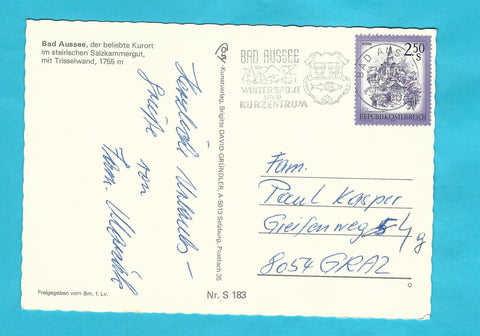 Bad Aussee, der beliebte Kurort
im steirischen Salzkammergut,
mit Trisselwand, 1755 m
Herzliche Urlaubs-
Grüße von
Fam.
Cosy-Kunstverlag, Brigitte DAVID-GRÜNDLER, A-5013 Salzburg, Postfach 35
BAD AUSSEE
WINTERSPORT
UND
KURZENTRUM
BAD AUS
2.50
S
REPUBLIK ÖSTERREICH
Fam.
Paul Kasper
Greifenweg 54g
8054 GRAZ
Freigegeben vom Bm. f. Lv.
Nr. S 183